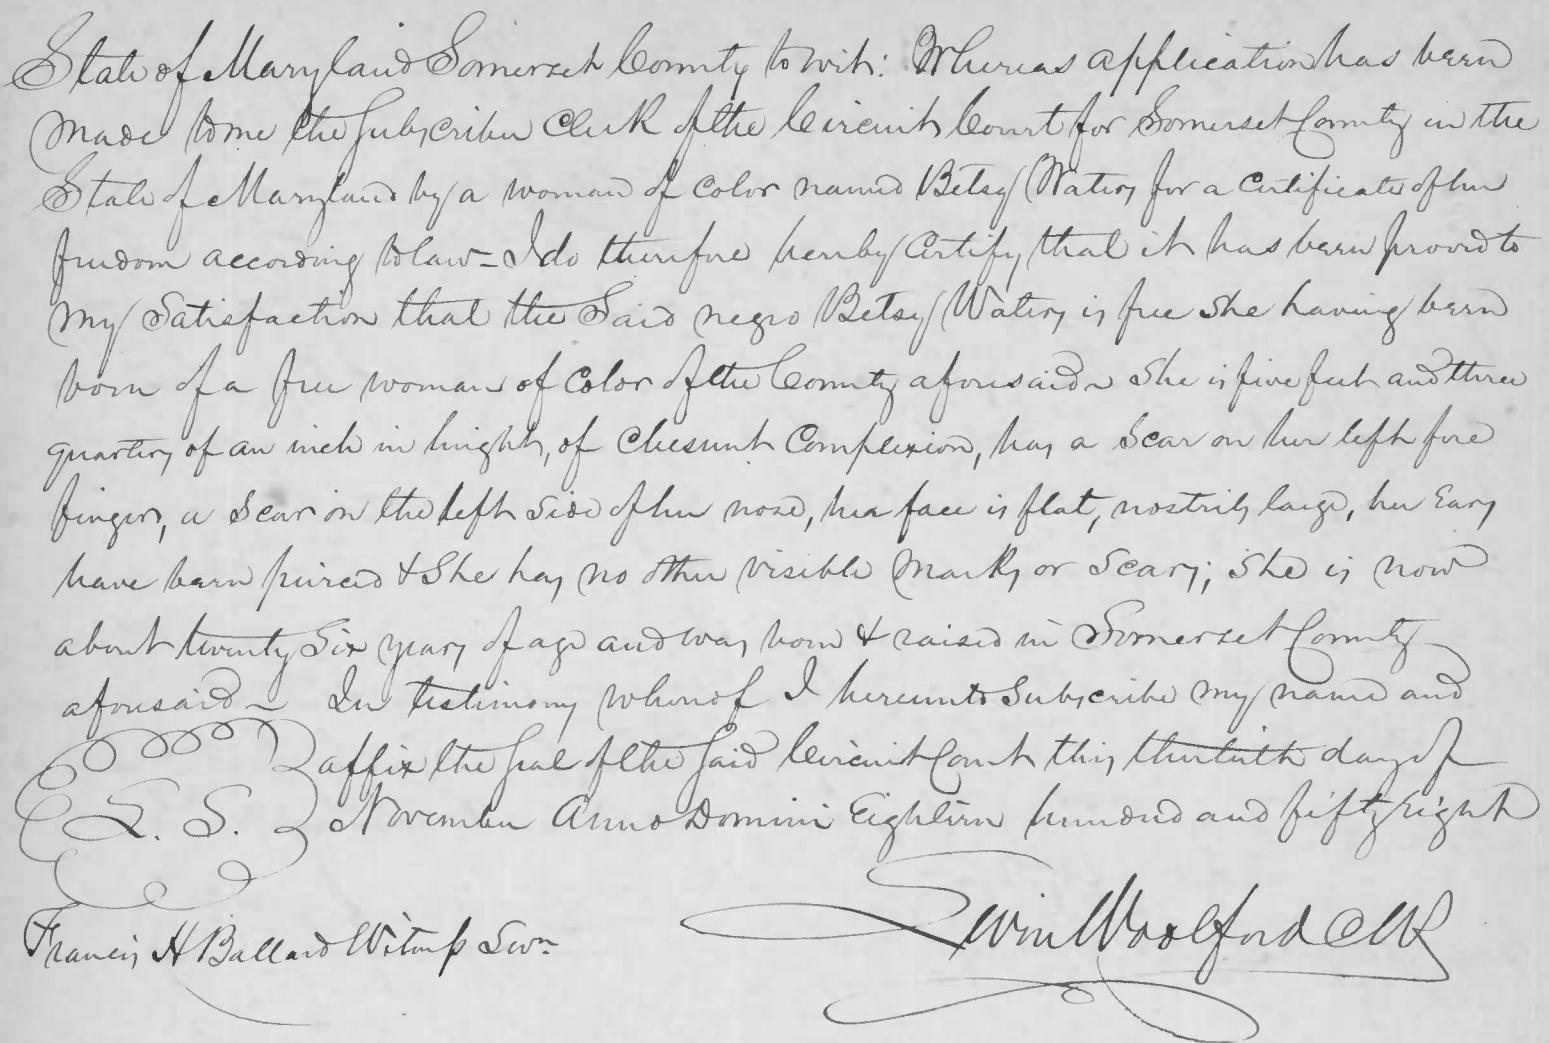 State of Maryland Somerset County to wit: Whereas application has been
made to me the Subscriber Clerk of the Circuit Court for Somerset County in the
State of Maryland by a woman of Color named Betsy Waters for a Certificate of her
freedom according to law – I do therefore hereby Certify that it has been proved to
my Satisfaction that the Said negro Betsy Waters is free She having been
born of a free woman of Color of the County aforesaid ~ She is five feet and three
quarters of an inch in hieght, of Chesunt Complexion, has a Scar on her left fore
finger, a Scar on the left Side of her nose, her face is flat, nostrils large, her Ears
have been peirced & She has no other visible marks or Scars; She is now
about twenty Six years of age and was born & raised in Somerset County
aforesaid ~ In testimony whereof I hereunto Subscribe my name and
affix the Seal of the Said Circuit Court this thirtieth day of
L. S. November Anno Domini Eighteen hundred and fifty Eight
Francis H Ballard Witness Swn
Levin Woolford Clk